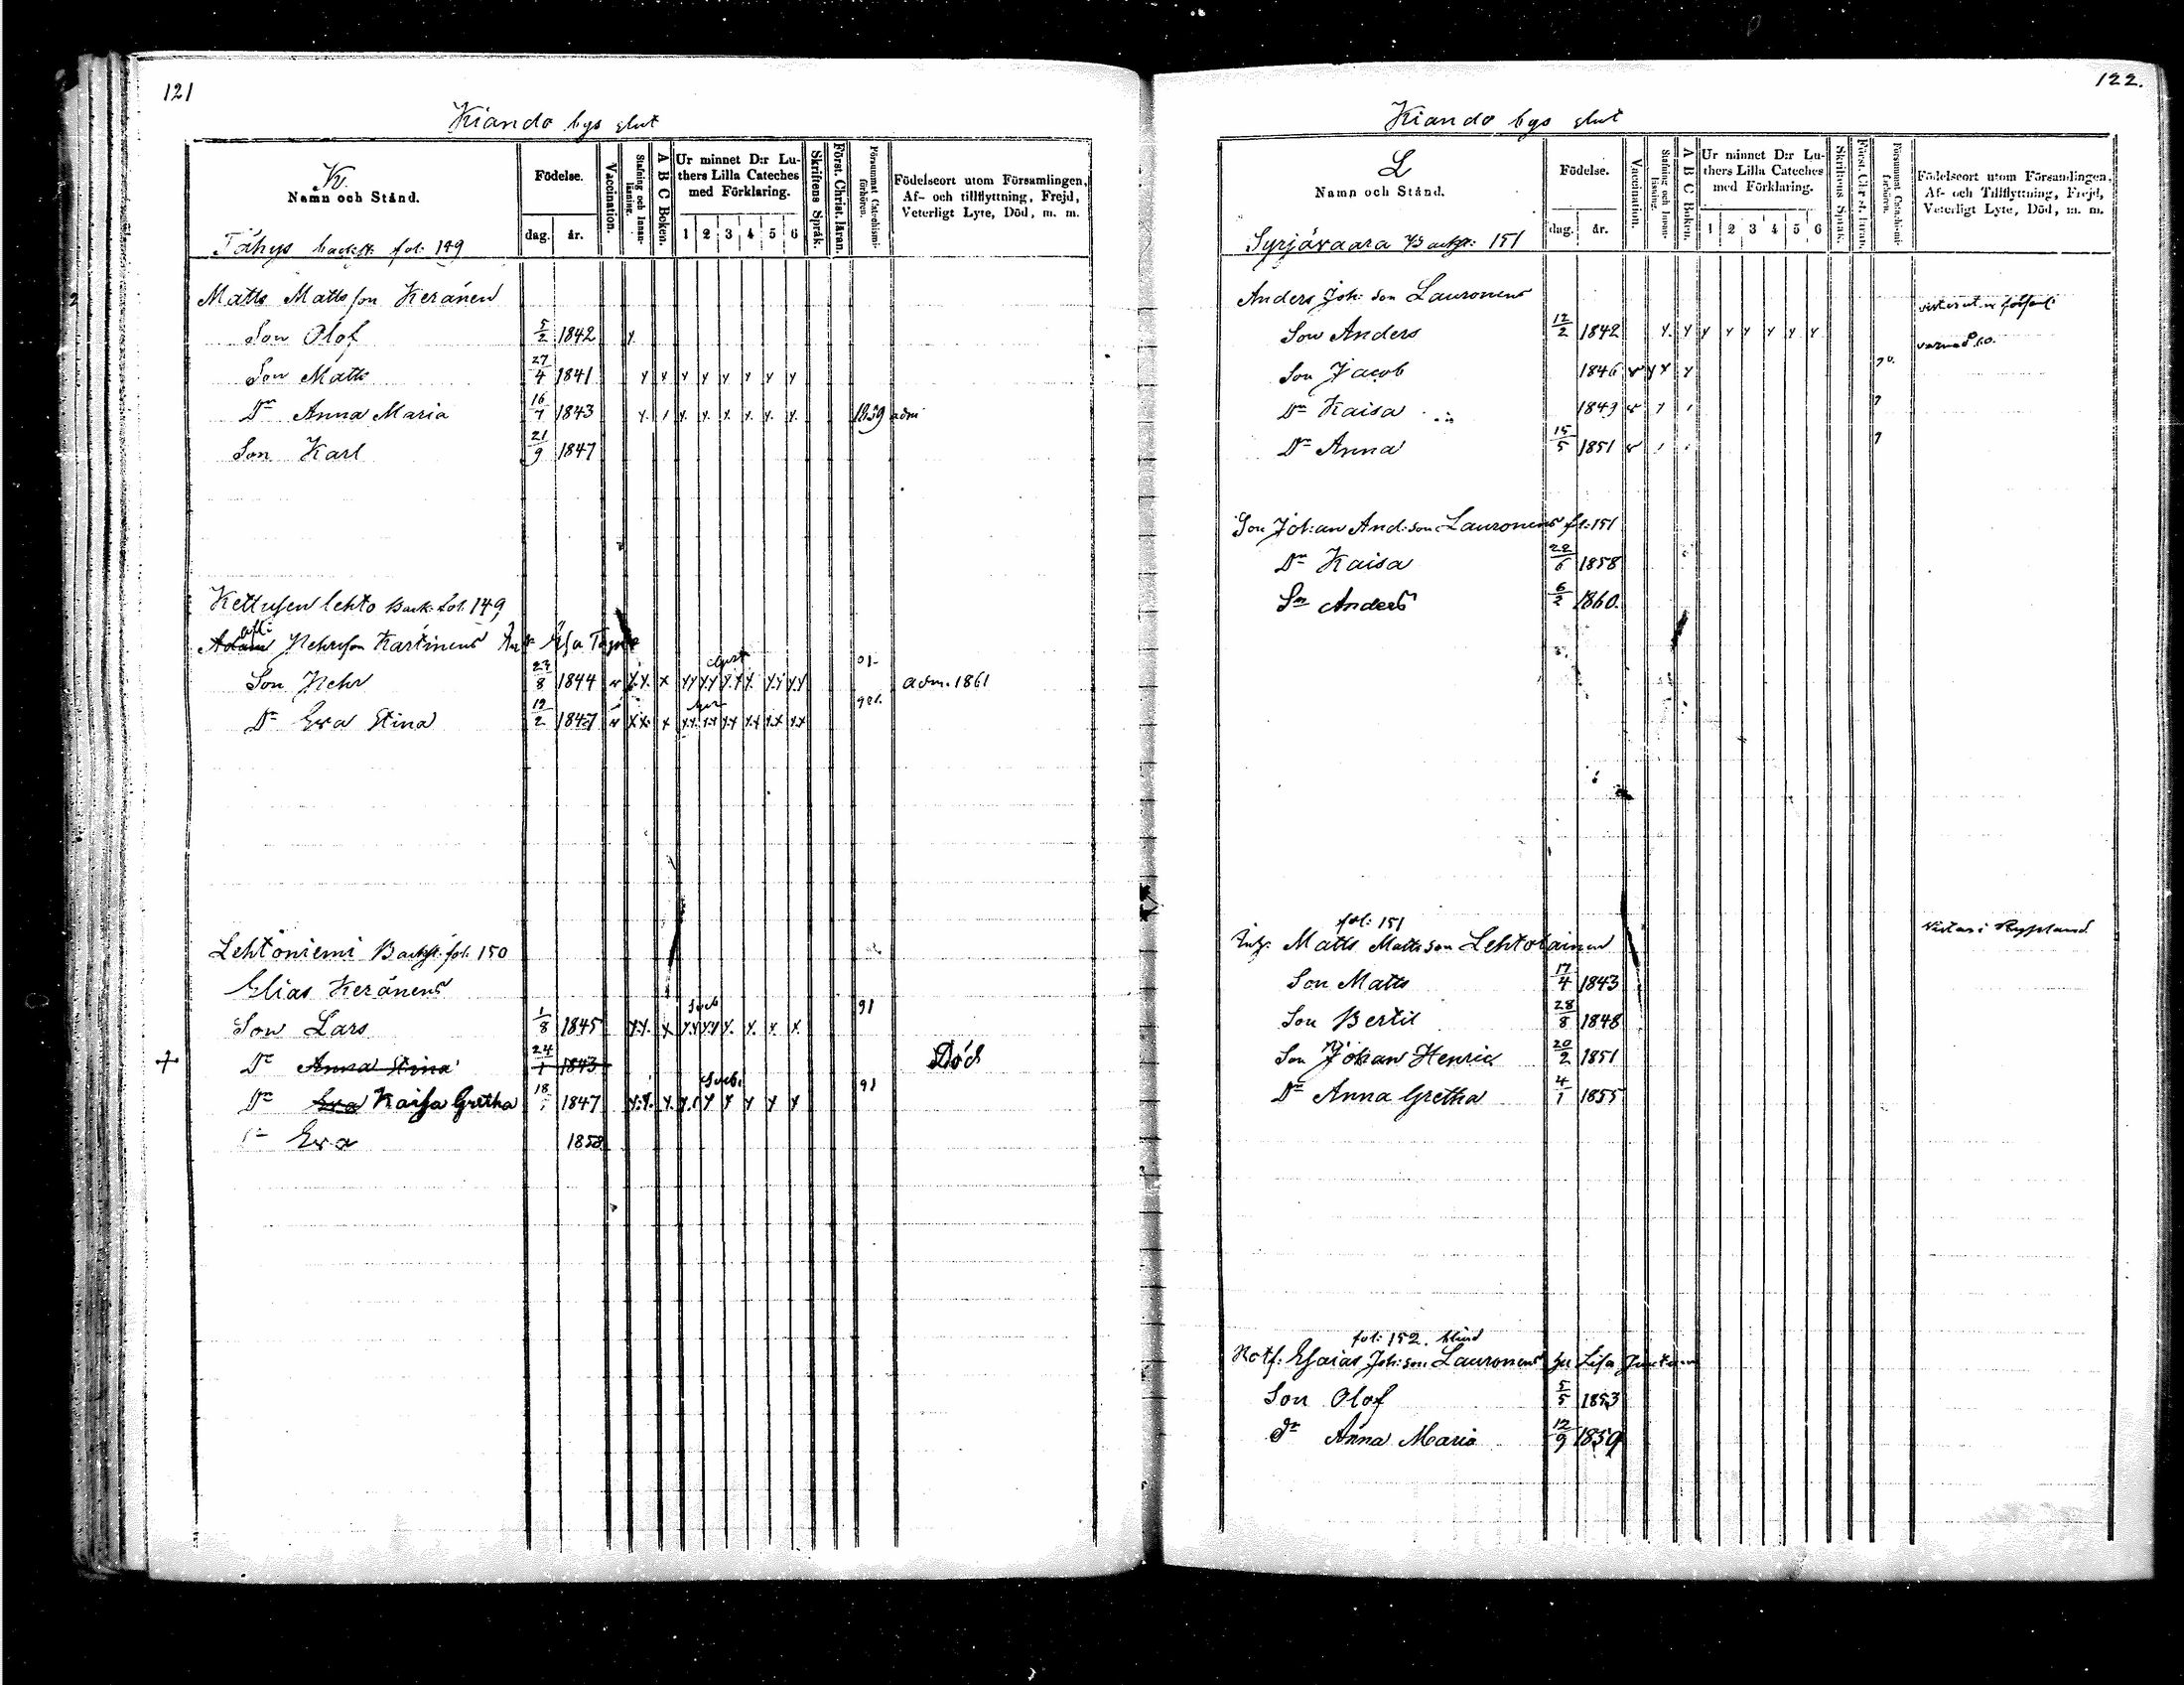 121
Kiando bys slut
K.
Namn och Stånd.
Födelse.
dag. år.
Vaccination.
Stafning och Innan-läsning.
A B C Boken.
Ur minnet D:r Lu-
thers Lilla Cateches
med Förklaring.
1 2 3 4 5 6
Skriftens Språk.
Först. Christ. läran.
Försummat Catechismi-förhören.
Födelseort utom Församlingen,
Af- och tillflyttning, Frejd,
Veterligt Lyte, Död, m. m.
Tähys backst: fol: 149
Matts Mattsson Keränen
Son Olof 5/2 1842 y
Son Matts 27/4 1841 y y y y y y y y
Dr Anna Maria 16/7 1843 y. y y. y. y. y. y. y. 1859 adm
Son Karl 21/9 1847
Kettusen lehto Back: fol: 149
Nehrsson Karkinens
Son Nehr 23/8 1844 adm. 1861
Dr Eva Stina 12/2 1847
Lehtoniemi Backst: fol: 150
Elias Keränens
Son Lars 1/8 1845 91
Dr Anna Stina 24/1 1843 Död
Dr Eva Kaisa Gretha 18 1847 91
Eva 1858
122.
Kiando bys slut
L
Namn och Stånd.
Födelse.
dag. år.
Vaccination.
Stafning och Innan-läsning.
A B C Boken.
Ur minnet D:r Lu-
thers Lilla Cateches
med Förklaring.
1 2 3 4 5 6
Skriftens Språk.
Först. Christ. läran.
Försummat Catechismi-förhören.
Födelseort utom Församlingen,
Af- och Tillflyttning, Frejd,
Veterligt Lyte, Död, m. m.
Syrjävaara Backst: 151
Anders Joh: son Lauronens
Son Anders 12/2 1842 y. y y y y y y y
Son Jacob 1846
Dr Kaisa 1849
Dr Anna 15/5 1851
Son Johan And: son Lauronens fol: 151
Dr Kaisa 22/6 1858
Sn Anders 6/2 1860.
fol: 151
Inh: Matts Matts son Lehtolainen Vistas i Ryssland
Son Matts 17/4 1843
Son Bertil 28/8 1848
Son Johan Henric 20/2 1851
Dr Anna Gretha 4/1 1855
fol: 152. blind
Esaias Joh: son Lauronens hu Lisa
Son Olof 5/5 1853
Dr Anna Maria 12/9 1859